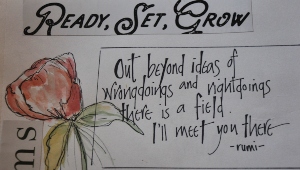 READY, SET, GROW
Out beyond ideas of
wrongdoings and rightdoings
there is a field.
I'll meet you there
-rumi-
ms